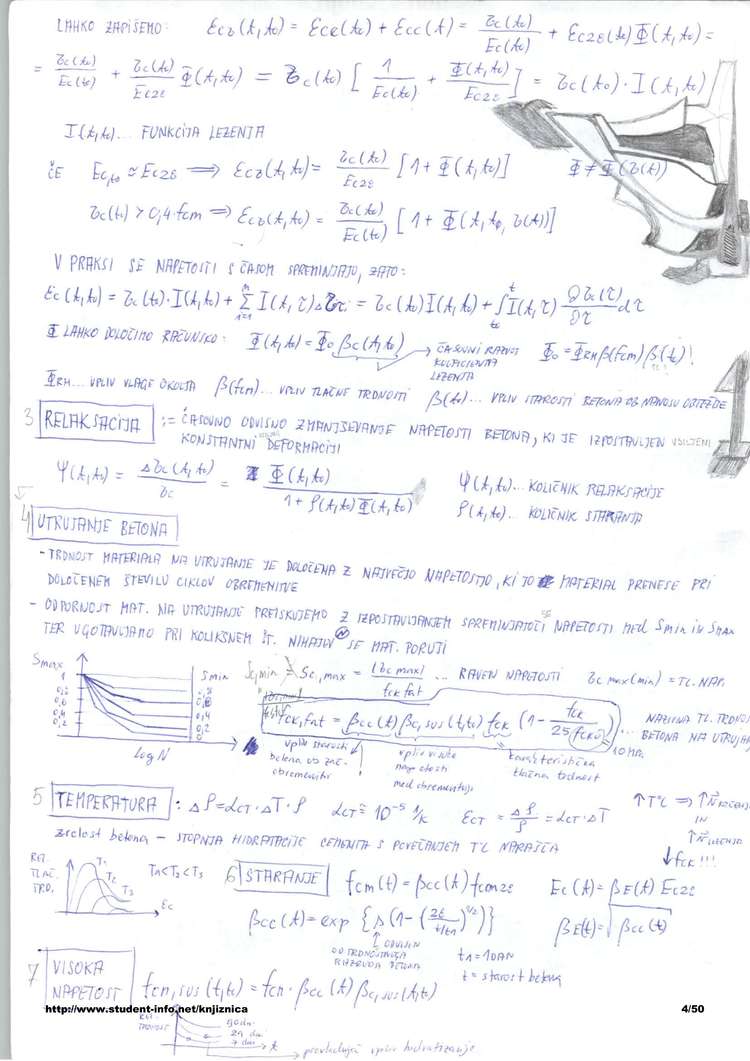 LAHKO ZAPIŠEMO: εcσ(t,t₀) = εce(t₀) + εcc(t) = σc(t₀)/Ec(t₀) + εc28(t₀) Φ(t,t₀) =
= σc(t₀)/Ec(t₀) + σc(t₀)/Ec28 Φ(t,t₀) = σc(t₀) [ 1/Ec(t₀) + Φ(t,t₀)/Ec28 ] = σc(t₀) · I(t,t₀)
I(t,t₀)... FUNKCIJA LEZENJA
ČE Ec,t₀ ≈ Ec28 ⟹ εcσ(t,t₀) = σc(t₀)/Ec28 [1 + Φ(t,t₀)] Φ ≠ Φ(σ(t))
σc(t₀) > 0,4 fcm ⟹ εcσ(t,t₀) = σc(t₀)/Ec(t₀) [1 + Φ(t,t₀, σ(t))]
V PRAKSI SE NAPETOSTI S ČASOM SPREMINJAJO, ZATO:
εc(t,t₀) = σc(t₀)·I(t,t₀) + Σ I(t,τ) Δσ = σc(t₀) I(t,t₀) + ∫ I(t,τ) ∂σc(τ)/∂τ dτ
Φ LAHKO DOLOČIMO RAČUNSKO: Φ(t,t₀) = Φ₀ βc(t,t₀) → ČASOVNI RAZVOJ KOEFICIENTA LEZENJA Φ₀ = ΦRH β(fcm) β(t₀)!
ΦRH... VPLIV VLAGE OKOLJA β(fcm)... VPLIV TLAČNE TRDNOSTI β(t₀)... VPLIV STAROSTI BETONA OB NANOSU OBTEŽBE
3 RELAKSACIJA := ČASOVNO ODVISNO ZMANJŠEVANJE NAPETOSTI BETONA, KI JE IZPOSTAVLJEN VSILJENI
KONSTANTNI DEFORMACIJI
Ψ(t,t₀) = Δσc(t,t₀)/σc = Φ(t,t₀)/1 + ρ(t,t₀) Φ(t,t₀) Ψ(t,t₀)... KOLIČNIK RELAKSACIJE
ρ(t,t₀)... KOLIČNIK STARANJA
4 UTRUJANJE BETONA
- TRDNOST MATERIALA NA UTRUJANJE JE DOLOČENA Z NAJVEČJO NAPETOSTJO, KI JO MATERIAL PRENESE PRI
DOLOČENEM ŠTEVILU CIKLOV OBREMENITVE
- ODPORNOST MAT. NA UTRUJANJE PREISKUJEMO Z IZPOSTAVLJANJEM SPREMINJAJOČI SE NAPETOSTI MED Smin IN Smax
TER UGOTAVLJAMO PRI KOLIKŠNEM ŠT. NIHAJEV N SE MAT. PORUŠI
Smax Smin Sc,max = |σc max|/fck fat ... RAVEN NAPETOSTI σc max(min) = TL. NAP.
1
0,8
0,6
0,4
0,2
,8
0,6
0,4
0,2
0
log N
fck,fat = βcc(t) βc,sus(t,t₀) fck (1 - fck/25 fck0) ... NAZIVNA TL. TRDNOST
BETONA NA UTRUJAN
10 MPa
vpliv starosti betona ob zač. obremenitv
vpliv visoke napetosti med obremenitvijo
karakteristična tlačna trdnost
5 TEMPERATURA : Δℓ = αCT · ΔT · ℓ αCT ≅ 10⁻⁵ 1/K εCT = Δℓ/ℓ = αCT · ΔT
↑T°C ⟹ ↑ KRČENJA
IN
↑ LEZENJA
↓ fck !!!
zrelost betona - STOPNJA HIDRATACIJE CEMENTA S POVEČANJEM T°C NARAŠČA
REL. TLAČ. TRD. T₁ T₂ T₃ εc T₁<T₂<T₃
6 STARANJE fcm(t) = βcc(t) fcm28 Ec(t) = βE(t) Ec28
βcc(t) = exp {s(1 - (28/t/t₁)^1/2)} βE(t) = √βcc(t)
ODVISEN OD TRDNOSTNEGA RAZREDA BETONA
t₁ = 1 DAN
t = starost betona
7 VISOKA NAPETOST fcm,sus(t,t₀) = fcm · βcc(t) βc,sus(t,t₀)
http://www.student-info.net/knjiznica 4/50
REL. TRDNOST
90 dni
28 dni
7 dni
t
→ prevladujoč vpliv hidratizacije